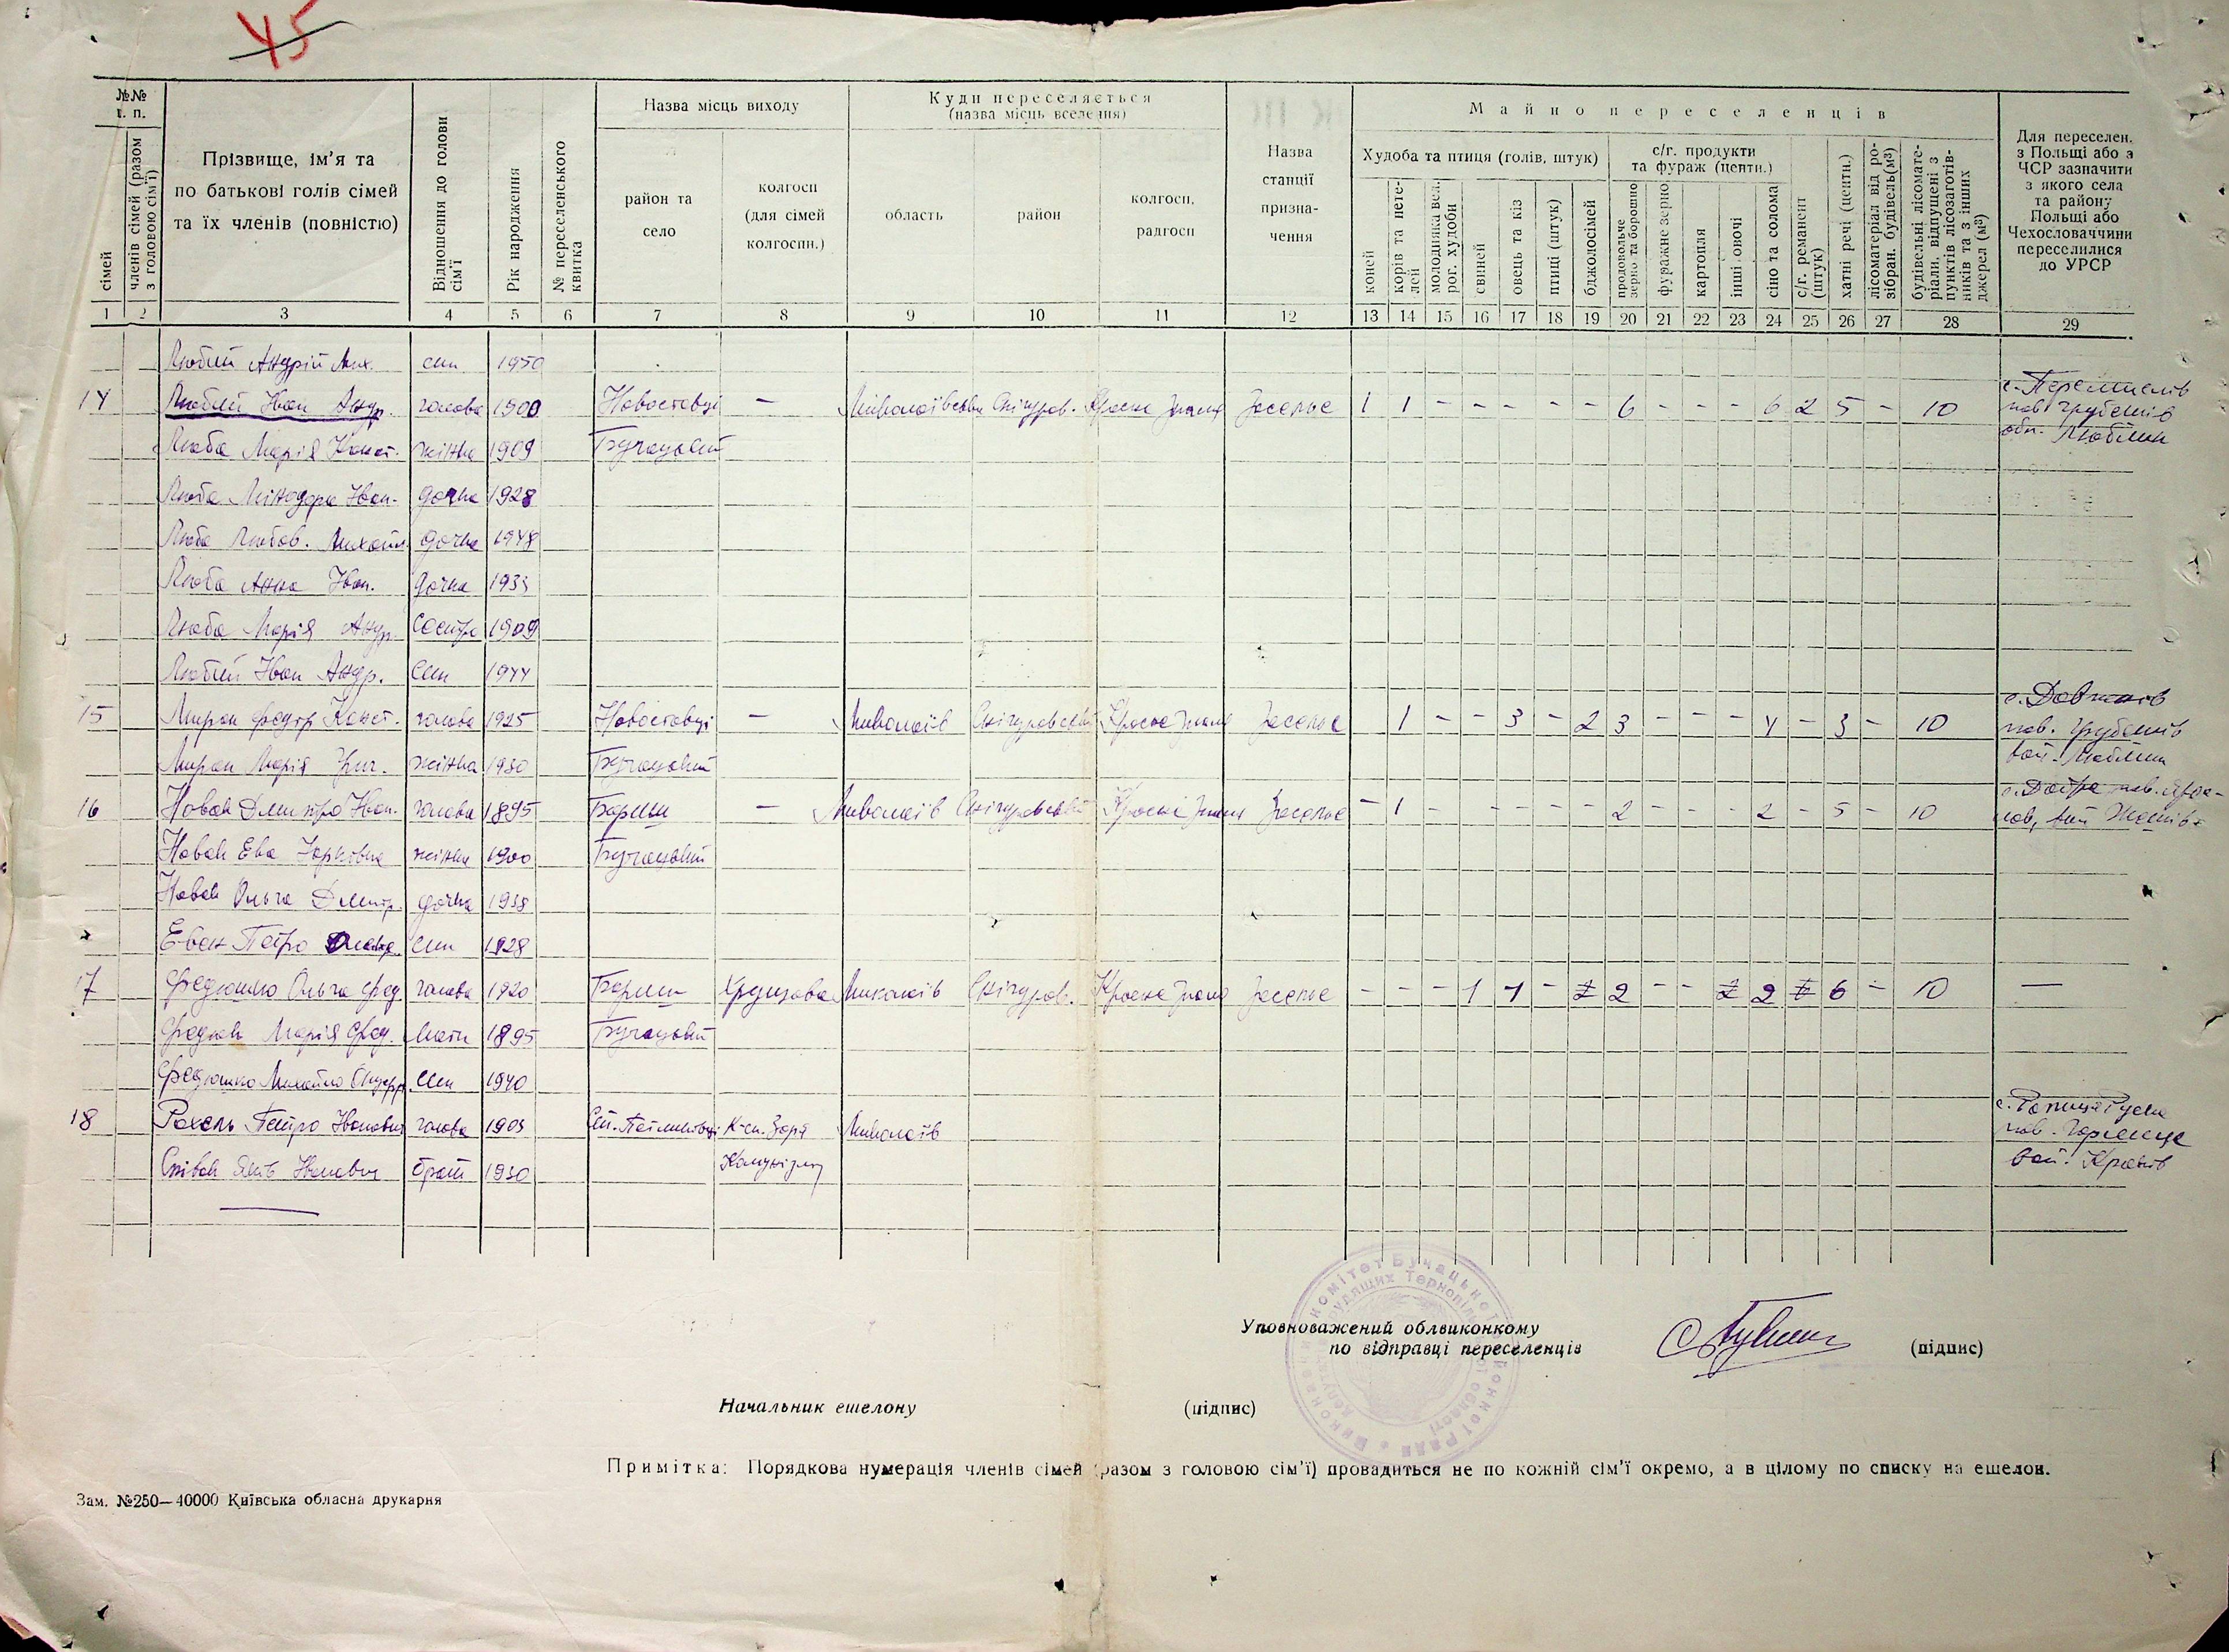 45
№№ п. п.
сімей
членів сімей (разом з головою сім'ї)
Прізвище, ім'я та
по батькові голів сімей
та їх членів (повністю)
Відношення до голови сім'ї
Рік народження
№ переселенського квитка
Назва місць виходу
район та
село
колгосп
(для сімей
колгоспн.)
Куди переселяється
(назва місць вселення)
область
район
колгосп,
радгосп
Назва
станції
призна-
чення
Майно переселенців
Худоба та птиця (голів, штук)
с/г. продукти
та фураж (центн.)
коней
корів та нете-
лей
молодняка вел.
рог. худоби
свиней
овець та кіз
птиці (штук)
бджолосімей
продовольче
зерно та борошно
фуражне зерно
картопля
інші овочі
сіно та солома
с/г. реманент
(штук)
хатні речі (центн.)
лісоматеріал від ро-
зібран. будівель (м³)
будівельні лісомате-
ріали, відпущені з
пунктів лісозаготів-
ників та з інших
джерел (м³)
Для переселен.
з Польщі або з
ЧСР зазначити
з якого села
та району
Польщі або
Чехословаччини
переселилися
до УРСР
1 2 3 4 5 6 7 8 9 10 11 12 13 14 15 16 17 18 19 20 21 22 23 24 25 26 27 28 29
Любий Андрій Мих. син 1950
14 Любий Іван Андр. голова 1900 Новоставці — Миколаївська Снігуров. Красне Знамя Заселье 1 1 - - - - - 6 - - - 6 2 5 - 10 с. Перемислів
пов. Грубешів
обл. Люблин
Люба Марія Конст. жінка 1909 Бучацький
Люба Мінодора Іван. дочка 1928
Люба Любов. Михайл. дочка 1948
Люба Анна Іван. дочка 1933
Люба Марія Андр. Сестра 1909
Любий Іван Андр. Син 1944
15 Мирон Федір Конст. голова 1925 Новоставці — Миколаїв Снігуровський Красне Знамя Заселье 1 - - 3 - 2 3 - - - 4 - 3 - 10 с. Довжнів
пов. Грубешів
вой. Люблин
Мирон Марія Григ. жінка 1930 Бучацький
16 Новак Дмитро Іван. голова 1895 Бариш — Миколаїв Снігуровський Красне Знамя Заселье - 1 - - - - - 2 - - - 2 - 5 - 10
Новак Ева Юрківна жінка 1900 Бучацький
Новак Ольга Дмитр. дочка 1938
Петро син 1928
17 Федюшко Ольга Фед. голова 1920 Бариш Хрущова Миколаїв Снігуров. Красне Знамя Заселье - - - 1 1 - 2 2 - - 2 2 6 - 10 —
Марія Фед. мати 1895 Бучацький
Федюшко Михайло син 1940
18 Рохель Петро Іванович голова 1903 К-сп. Зоря Миколаїв
пов. Горлице
вой. Краків
Співак Яків Іванович брат 1930 Комунізму
Виконавчий комітет Бучацького районної Ради депутатів трудящих Тернопільської області
Уповноважений облвиконкому
по відправці переселенців
(підпис)
Начальник ешелону (підпис)
Примітка: Порядкова нумерація членів сімей (разом з головою сім'ї) провадиться не по кожній сім'ї окремо, а в цілому по списку на ешелон.
Зам. №250—40000 Київська обласна друкарня